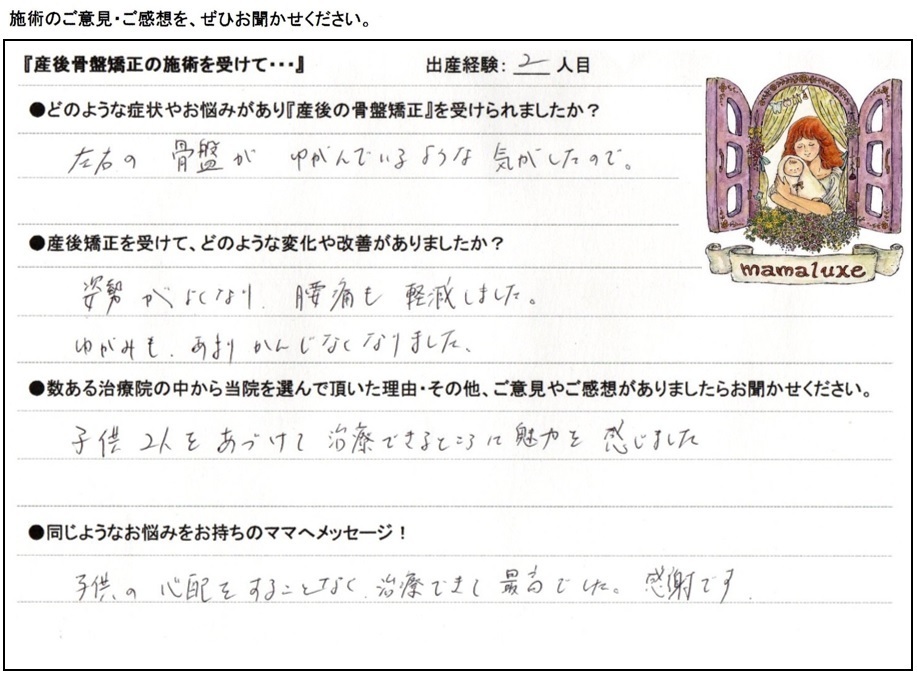 施術のご意見・ご感想を、ぜひお聞かせください。
『産後骨盤矯正の施術を受けて・・・』 出産経験: 2 人目
●どのような症状やお悩みがあり『産後の骨盤矯正』を受けられましたか？
左右の 骨盤が ゆがんでいるような 気がしたので。
●産後矯正を受けて、どのような変化や改善がありましたか？
姿勢がよくなり、腰痛も 軽減しました。
ゆがみも、あまりかんじなくなりました、
mamaluxe
●数ある治療院の中から当院を選んで頂いた理由・その他、ご意見やご感想がありましたらお聞かせください。
子供 2人を あづけて 治療できるところに魅力を 感じました
●同じようなお悩みをお持ちのママへメッセージ！
子供の 心配をすることなく、治療できて 最高でした。 感謝です.